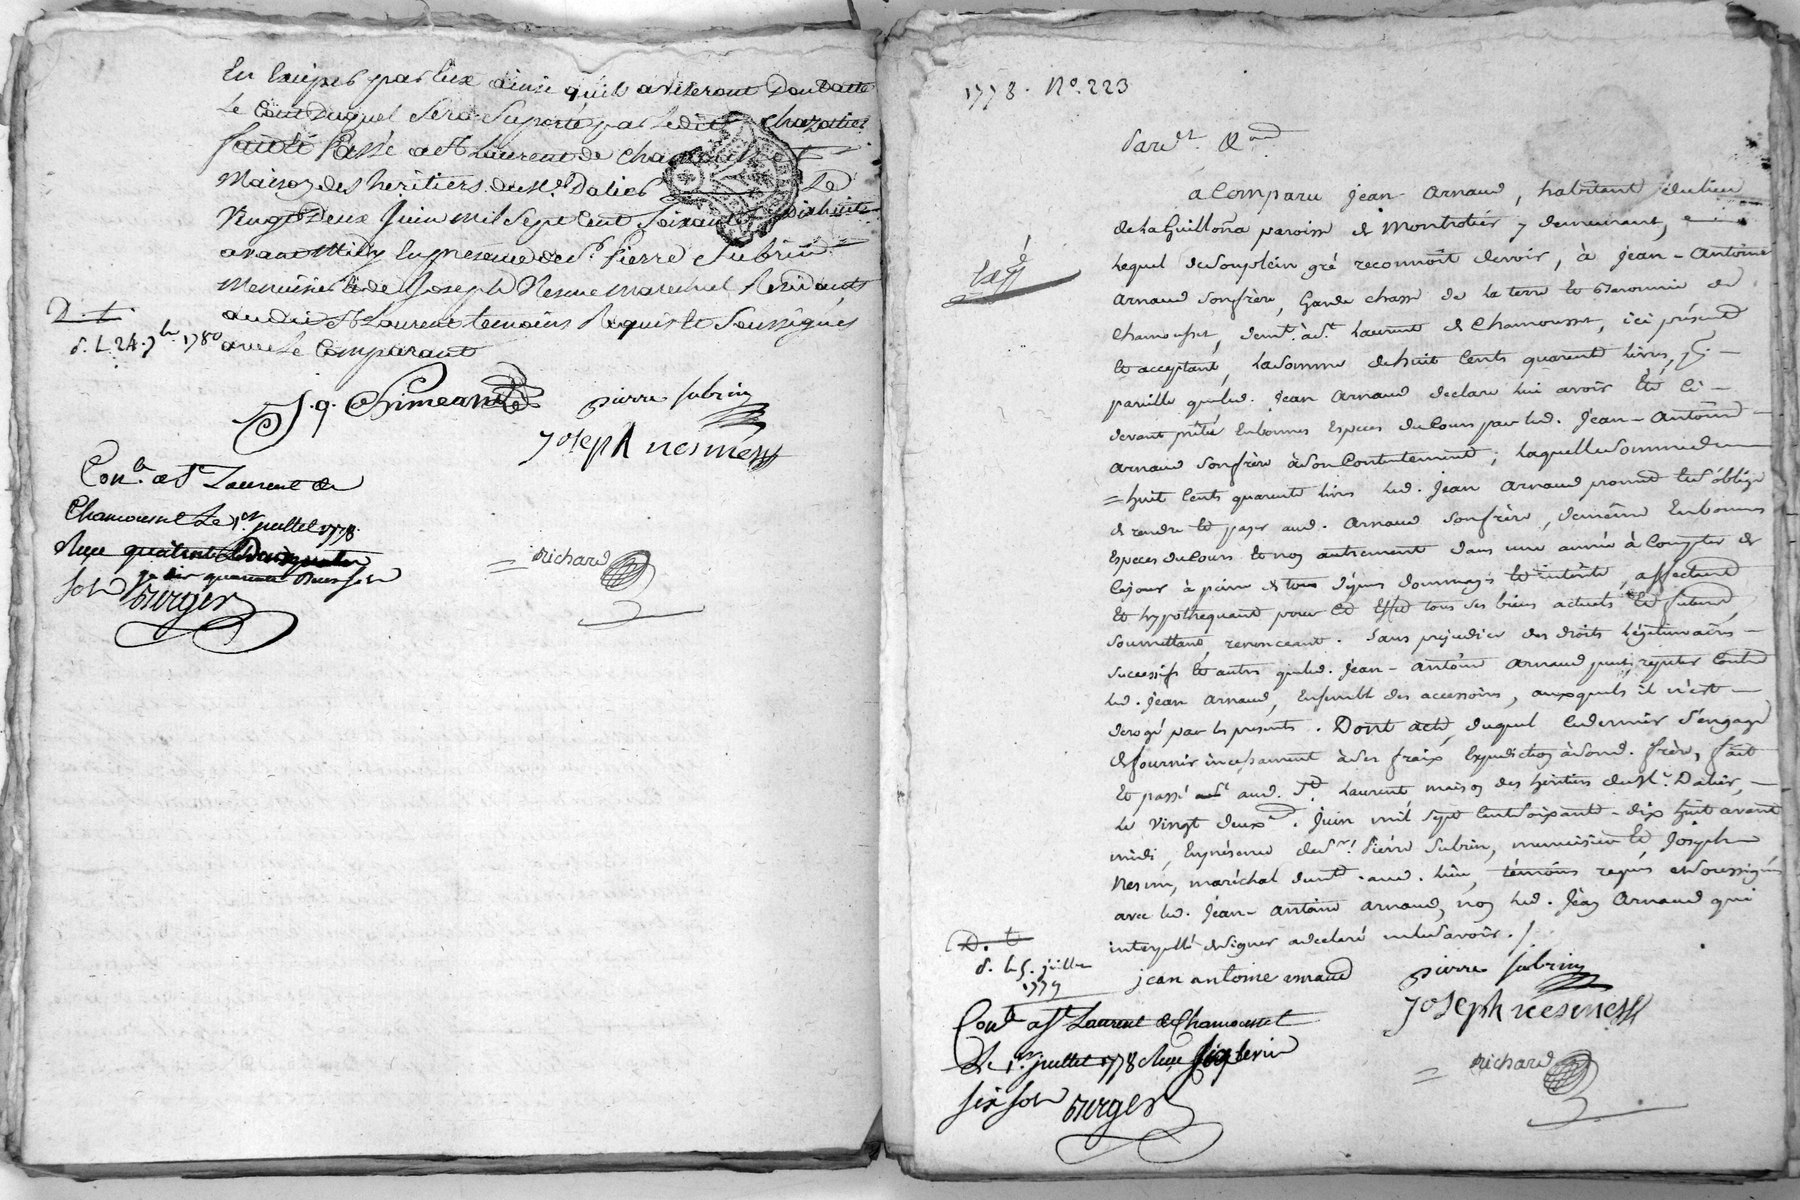 En Exiper par Eux ainsi qu'ils aviseront Dont acte
Le Cout Duquel Sera Suporté par Ledit Chazottier
fait et Passé a St Laurent de Cham
Maison des heritiers du Sr. Dalier Le
Vingt Deux Juin mil Sept Cent Soixante Dixhuit
avant Midy En presence de Sr. Pierre Subrin
Menuisier & de Joseph Nesme marechal Residants
audit St Laurent temoins Requis & Soussignés
avec le Comparant
D. t.
d. L. 24. 7bre 1780
pierre subrin
Joseph nesmess
Conlé a St Laurent de
Chamousset Le 1er juillet 1778.
Reçu
sols
Berger
Richard
1778. No. 223
Pardt.
a Comparu Jean Arnaud, habitant du lieu
de la Guillona paroisse de Montrotier y demeurant,
Lequel de son plein gré reconnoit devoir, à Jean-Antoine
Arnaud son frère, Garde chasse de la terre et Baronnie de
Chamousset, demt. à St. Laurent de Chamousset, ici présent
et acceptant, la somme de huit Cents quarente livres,
pareille que led. Jean Arnaud declare lui avoir été ci-
devant prêtée En bonnes Especes du Cours par led. Jean-Antoine
Arnaud son frère à son Contentement; laquelle somme de
= huit Cents quarente livres led. Jean Arnaud promet et s'oblige
de rendre et payer aud. Arnaud son frère, de même En bonnes
Especes du Cours et non autrement dans une année à Compter de
Ce jour à peine de tous dépens dommages et intérêts, affectant
et hypothequant pour cet Effet tous ses biens actuels et futurs,
soumettant, renonceant. Sans prejudice des droits légitimaires
successifs et autres que led. Jean-Antoine Arnaud peut repeter contre
led. Jean Arnaud, Ensemble des accessoires, auxquels il n'est
derogé par les presentes. Dont acte, duquel Ce dernier s'engage
de fournir incessament à ses fraix Expedition à son d. frère, fait
et passé aud. St. Laurent maison des héritiers du Sr. Dalier,
le vingt deux. Juin mil sept Cent soixante-dix huit avant
midi, En présence de Sr. Pierre Subrin, menuisier et Joseph
Nesme, maréchal demt. aud. lieu, témoins requis et soussignés
avec led. Jean-Antoine Arnaud, non led. Jean Arnaud qui
interpellé de signer a declaré ne le savoir.
D. t.
d. le 5. juillet
1779
jean antoine arnaud
pierre subrin
Joseph nesmess
Conlé a St Laurent de Chamousset
Le 1er juillet 1778 Reçu
six sols
Berger
Richard